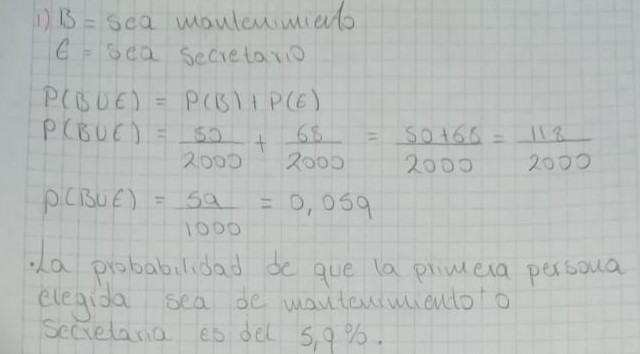 1) B = sea mantenimiento
E = sea secretario
P(BUE) = P(B) + P(E)
P(BUE) = 50/2000 + 68/2000 = 50+68/2000 = 118/2000
P(BUE) = 59/1000 = 0,059
.La probabilidad de que la primera persona
elegida sea de mantenimiento o
secretaria es del 5,9%.